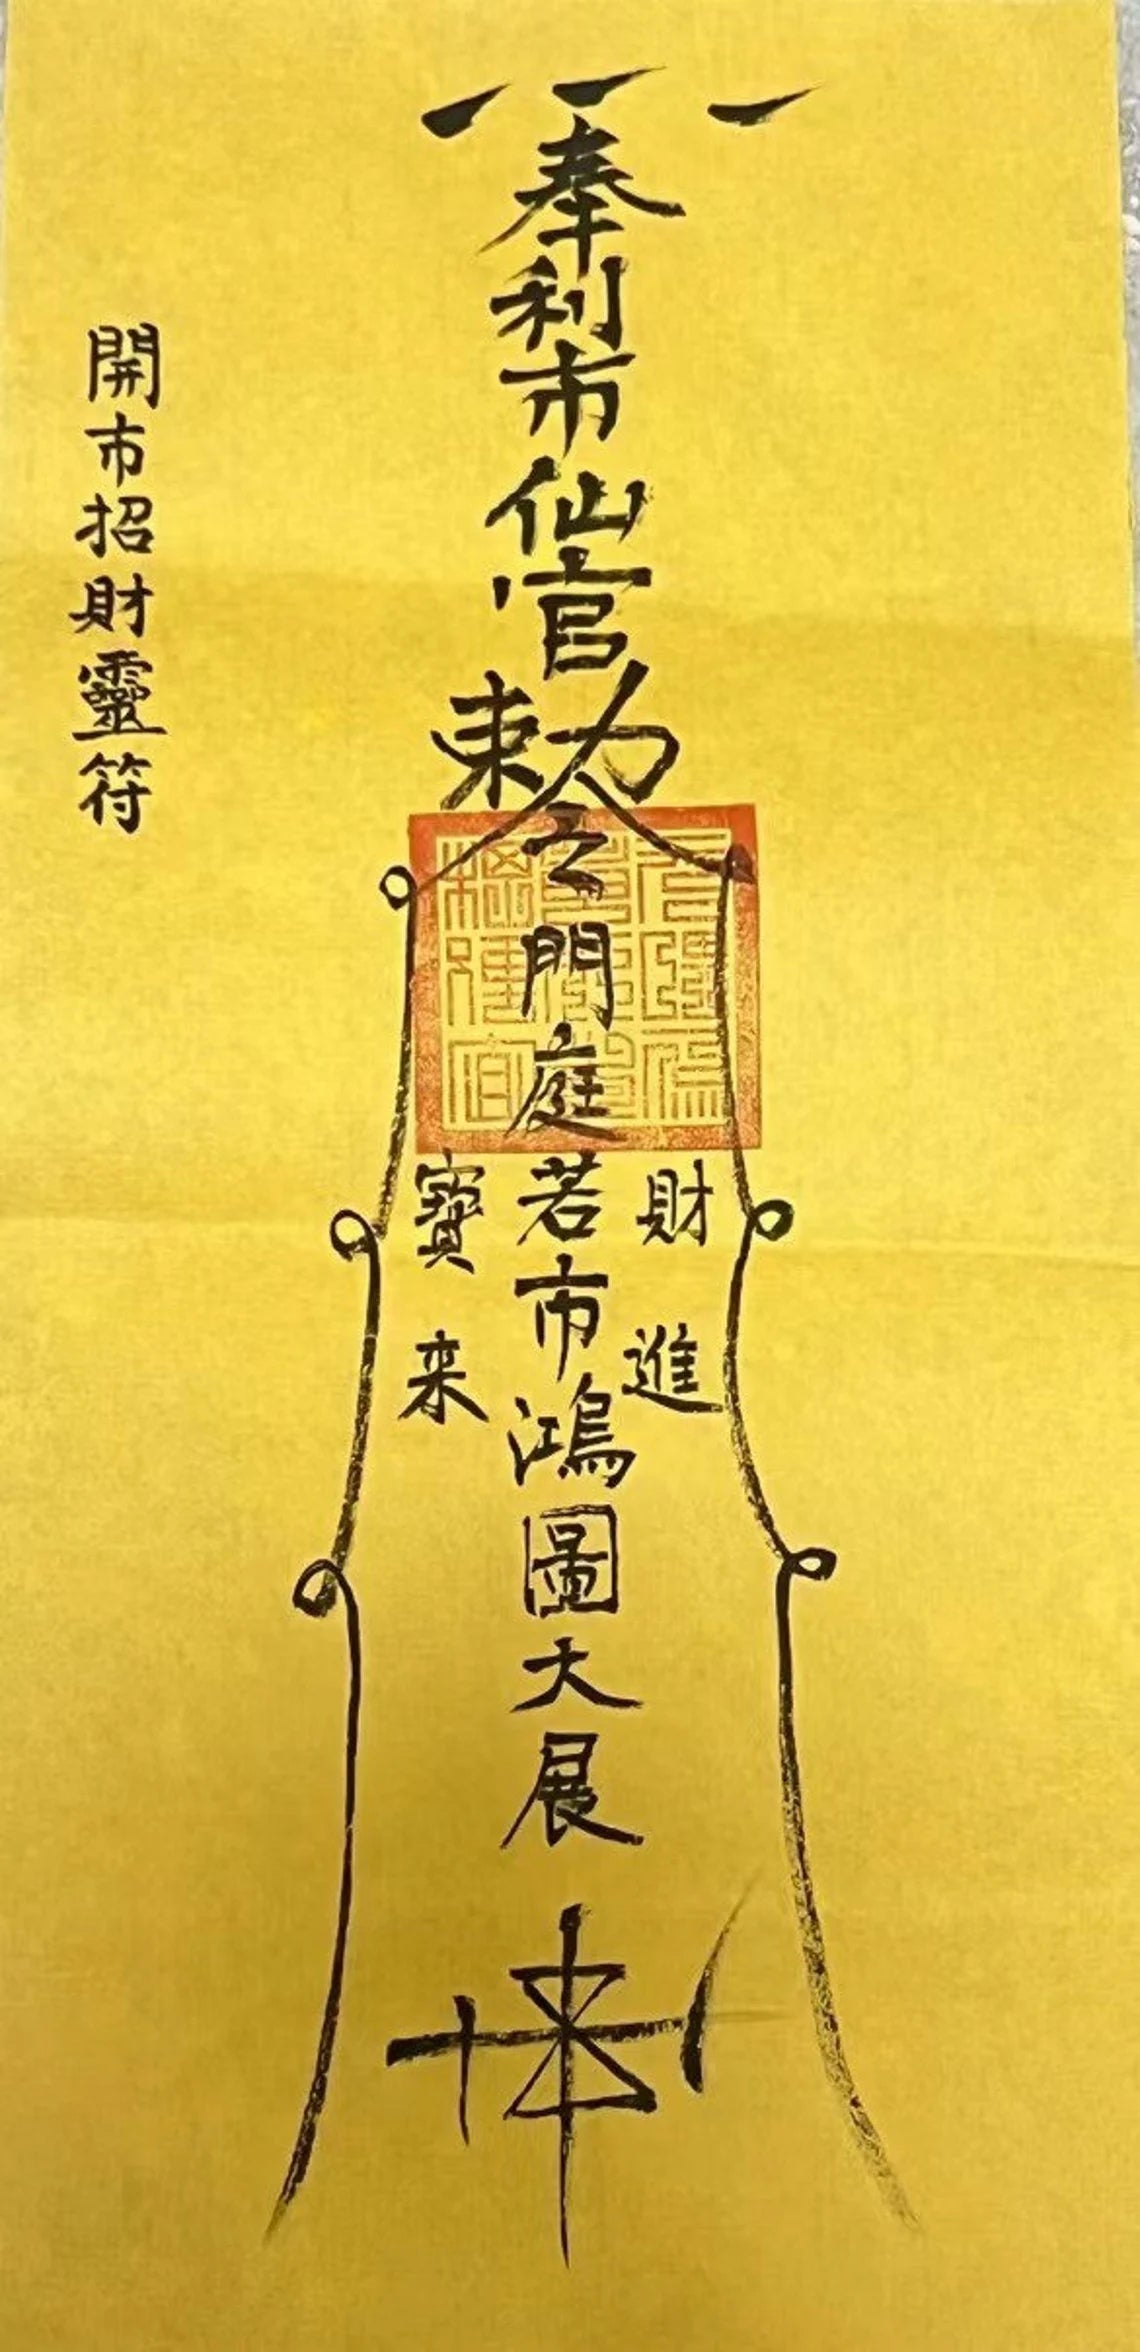 奉利市仙官敕令門庭若市鴻圖大展
財進
寶来
開市招財靈符